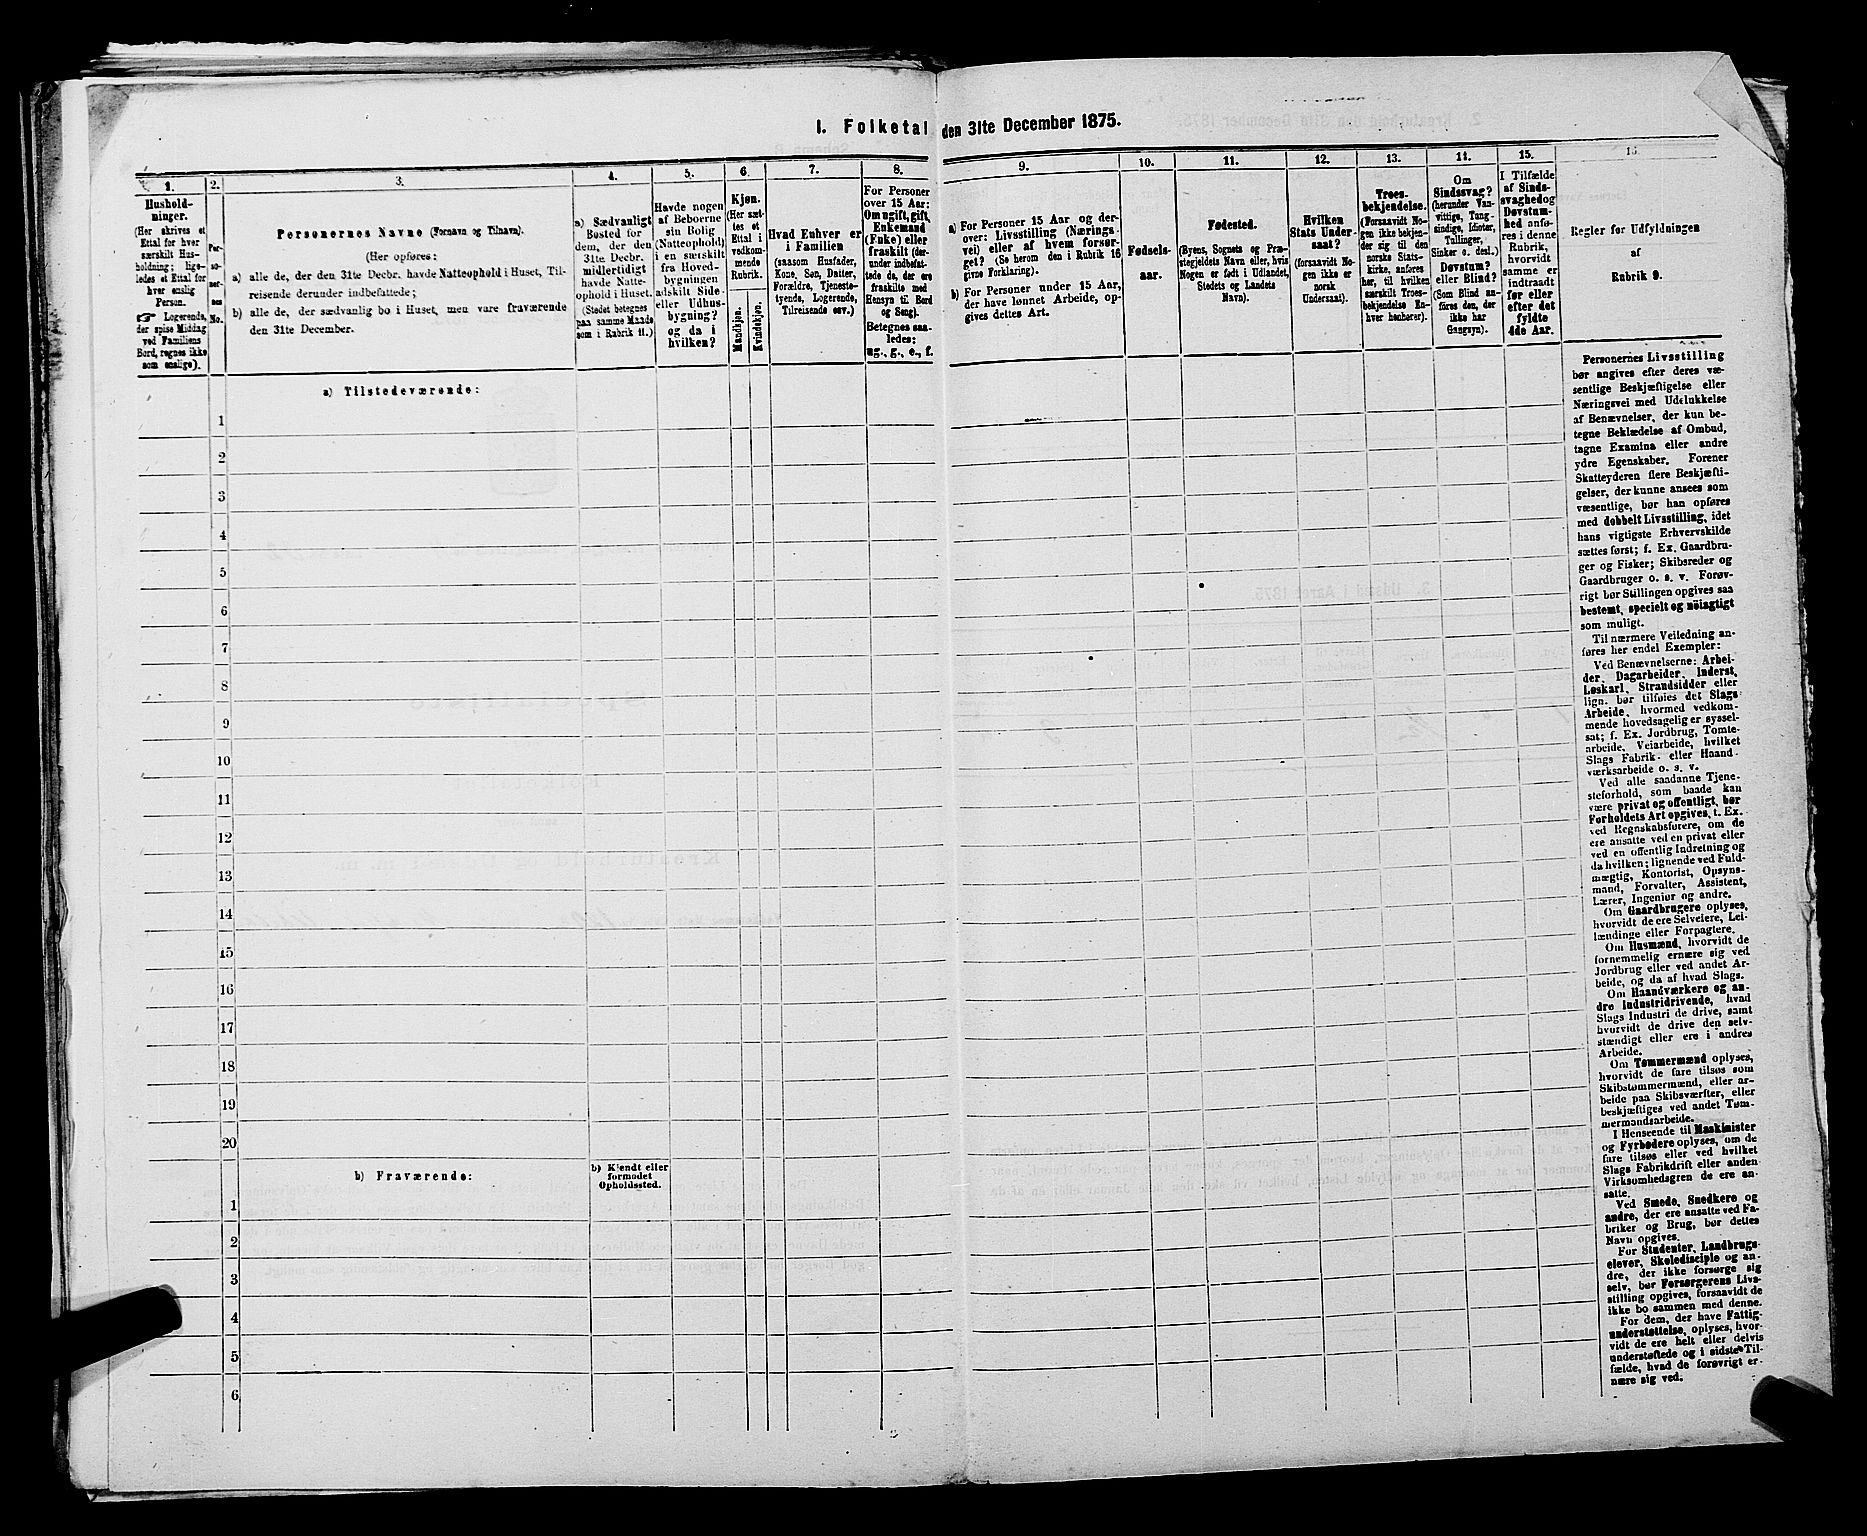 I. Folketal den 31te December 1875.
1.
Hushold-
ninger.
(Her skrives et
Ettal for hver
særskilt Hus-
holdning; lige-
ledes et Ettal for
hver enslig
Person.
☞ Logerende,
der spise Middag
ved Familiens
Bord, regnes ikke
som enslige).
2.
Per-
so-
ner-
nes
No.
3.
Personernes Navne (Fornavn og Tilnavn).
(Her opføres:
a) alle de, der den 31te Decbr. havde Natteophold i Huset, Til-
reisende derunder indbefattede;
b) alle de, der sædvanlig bo i Huset, men vare fraværende
den 31te December.
4.
a) Sædvanligt
Bosted for
dem, der den
31te Decbr.
midlertidigt
havde Natte-
ophold i Huset.
(Stedet betegnes
paa samme Maade
som i Rubrik 11.)
5.
Havde nogen
af Beboerne
sin Bolig
(Natteophold)
i en særskilt
fra Hoved-
bygningen
adskilt Side-
eller Udhus-
bygning?
og da i
hvilken?
6.
Kjøn.
(Her sæt-
tes et
Ettal i
vedkom-
mende
Rubrik.
Mandkjøn.
Kvindekjøn.
7.
Hvad Enhver er
i Familien
(saasom Husfader,
Kone, Søn, Datter,
Forældre, Tjeneste-
tyende, Logerende,
Tilreisende osv.)
8.
For Personer
over 15 Aar:
Om ugift, gift,
Enkemand
(Enke) eller
fraskilt (der-
under indbefat-
tede de, der ere
fraskilte med
Hensyn til Bord
og Seng).
Betegnes saa-
ledes:
ug., g., e., f.
9.
a) For Personer 15 Aar og der-
over: Livsstilling (Nærings-
vei) eller af hvem forsør-
get? (Se herom den i Rubrik 16
givne Forklaring).
b) For Personer under 15 Aar,
der have lønnet Arbeide, op-
gives dettes Art.
10.
Fødsels-
aar.
11.
Fødested.
(Byens, Sognets og Præ-
stegjeldets Navn eller, hvis
Nogen er født i Udlandet,
Stedets og Landets
Navn).
12.
Hvilken
Stats Under-
saat?
(forsaavidt No-
gen ikke er
norsk
Undersaat).
13.
Troes-
bekjendelse.
(Forsaavidt No-
gen ikke bekjen-
der sig til den
norske Stats-
kirke, anføres
her, til hvilken
særskilt Troes-
bekjendelse En-
hver henhører).
14.
Om
Sindssvag?
(herunder Van-
vittige, Tung-
sindige, Idioter,
Tullinger,
Sinker o. desl.)
Døvstum?
eller Blind?
(Som Blind an-
føres den, der
ikke har
Gangsyn).
15.
I Tilfælde
af Sinds-
svaghed og
Døvstum-
hed anfø-
res i denne
Rubrik,
hvorvidt
samme er
indtraadt
før eller
efter det
fyldte
4de Aar.
16.
Regler før Udfyldningen
af
Rubrik 9.
a) Tilstedeværende:
1
2
3
4
5
6
7
8
9
10
11
12
13
14
15
16
17
18
19
20
b) Fraværende:
b) Kjendt eller
formodet
Opholdssted.
1
2
3
4
5
6
Personernes Livsstilling
bør angives efter deres væ-
sentlige Beskjæftigelse eller
Næringsvei med Udelukkelse
af Benævnelser, der kun be-
tegne Beklædelse af Ombud,
tagne Examina eller andre
ydre Egenskaber. Forener
Skatteyderen flere Beskjæfti-
gelser, der kunne ansees som
væsentlige, bør han opføres
med dobbelt Livsstilling, idet
hans vigtigste Erhvervskilde
sættes først; f. Ex. Gaardbru-
ger og Fisker; Skibsreder og
Gaardbruger o. s. v. Forøv-
rigt bør Stillingen opgives saa
bestemt, specielt og nöiagtigt
som muligt.
Til nærmere Veiledning an-
føres her endel Exempler:
Ved Benævnelserne: Arbei-
der, Dagarbeider, Inderst,
Løskarl, Strandsidder eller
lign. bør tilføies det Slags
Arbeide, hvormed vedkom-
mende hovedsagelig er syssel-
sat; f. Ex. Jordbrug, Tomte-
arbeide, Veiarbeide, hvilket
Slags Fabrik- eller Haand-
værksarbeide o. s. v.
Ved alle saadanne Tjene-
steforhold, som baade kan
være privat og offentligt, bør
Forholdets Art opgives, f. Ex.
ved Regnskabsførere, om de
ere ansatte ved en privat eller
ved en offentlig Indretning og
da hvilken; lignende ved Fuld-
mægtig, Kontorist, Opsyns-
mand, Forvalter, Assistent,
Lærer, Ingeniør og andre.
Om Gaardbrugere oplyses,
hvorvidt de ere Selveiere, Lei-
lændinge eller Forpagtere.
Om Husmænd, hvorvidt de
fornemmelig ernære sig ved
Jordbrug eller ved andet Ar-
beide, og da af hvad Slags.
Om Haandværkere og an-
dre Industridrivende, hvad
Slags Industri de drive, samt
hvorvidt de drive den selv-
stændigt eller ere i andres
Arbeide.
Om Tømmermænd oplyses,
hvorvidt de fare tilsøs som
Skibstømmermænd, eller ar-
beide paa Skibsværfter, eller
beskjæftiges ved andet Tøm-
mermandsarbeide.
I Henseende til Maskinister
og Fyrbødere oplyses, om de
fare tilsøs eller ved hvilket
Slags Fabrikdrift eller anden
Virksomhedsgren de ere an-
satte.
Ved Smede, Snedkere og
andre, der ere ansatte ved Fa-
briker og Brug, bør dettes
Navn opgives.
For Studenter, Landbrugs-
elever, Skoledisciple og an-
dre, der ikke forsørge sig
selv, bør Forsørgerens Livs-
stilling opgives, forsaavidt de
ikke bo sammen med denne.
For dem, der have Fattig-
understøttelse, oplyses, hvor-
vidt de ere helt eller delvis
understøttede og i sidste Til-
fælde, hvad de forøvrigt er-
nære sig ved.